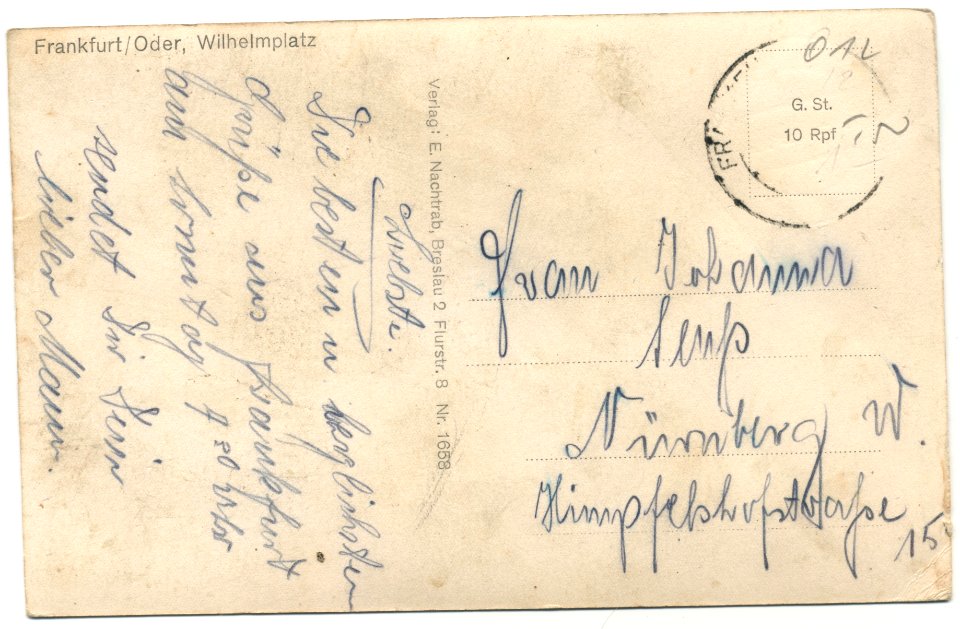 Frankfurt/Oder, Wilhelmplatz
Liebste.
Die besten u herzlichsten
Grüße aus Frankfurt
am Sonntag 7 30 Uhr
sendet Dir Dein
lieber Mann.
Verlag: E. Nachtrab, Breslau 2 Flurstr. 8 Nr. 1658
G. St.
10 Rpf
FRA
Frau Johanna
Seuß
Nürnberg W.
Himpfelshofstraße
15